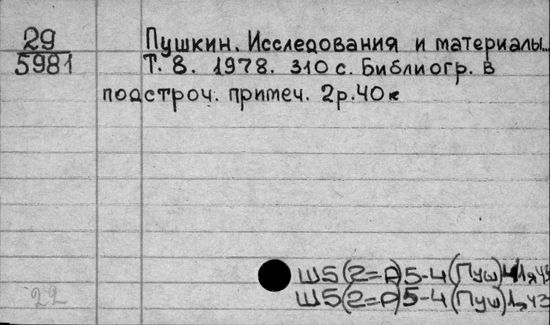 29
5981
Пушкин. Исследования и материалы...
Т. 8. 1978. 310 с. Библиогр. в
подстроч. примеч. 2р.40к
Ш5(2=Р)5-4(Пуш)
Ш5(2=Р)5-4(Пуш)
22